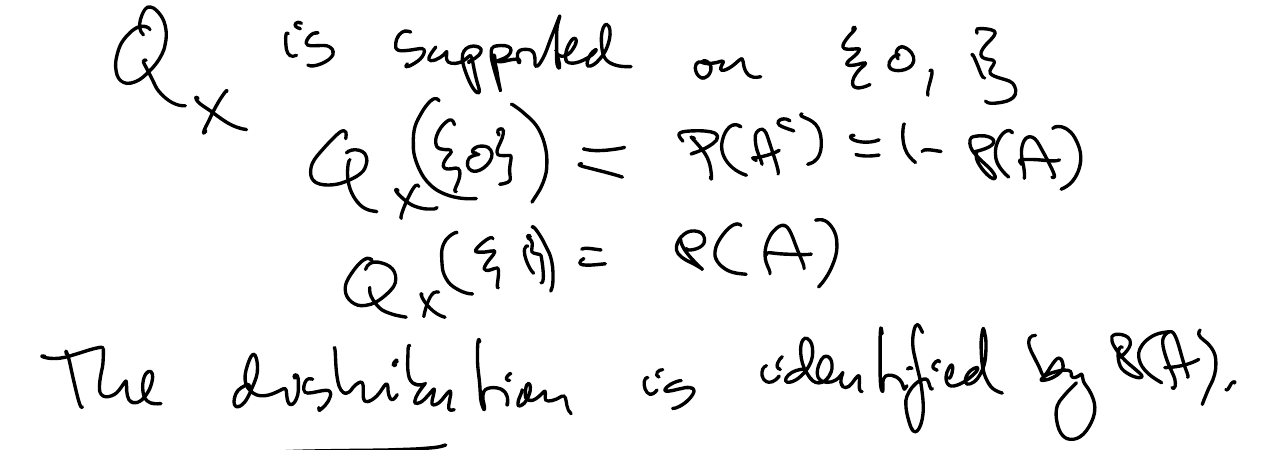 Q_X is supported on {0, 1}
Q_X({0}) = P(A^c) = 1 - P(A)
Q_X({1}) = P(A)
The distribution is identified by P(A).